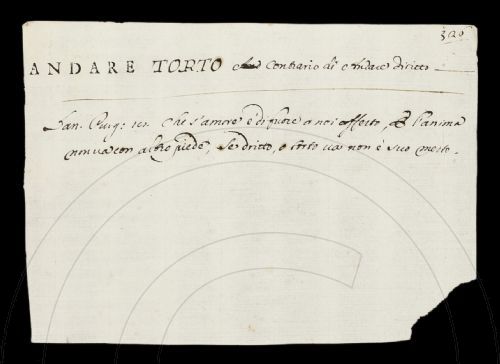 326
ANDARE TORTO Contrario di Andare diritto
Dan. Purg: 18. Che s'amore è di fuore a noi offerto, E l'anima
non va con altro piede, Se dritto, o torto va, non è suo merto.